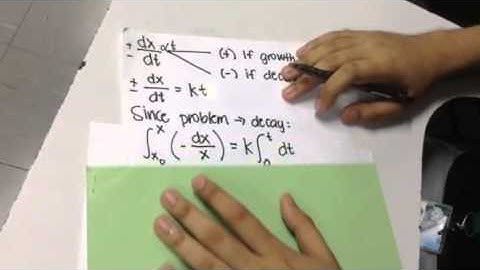 ± dx/dt ∝ t (+) if growth
(-) if dec
± dx/dt = kt
Since problem → decay:
∫ₓ₀ˣ (- dx/x) = k ∫₀ᵗ dt